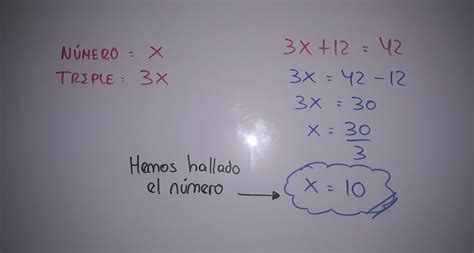 NÚMERO = X
TRIPLE = 3X
3X + 12 = 42
3X = 42 - 12
3X = 30
X = 30/3
Hemos hallado
el número → X = 10